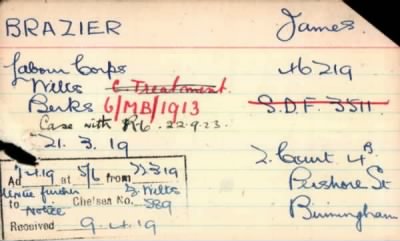 BRAZIER James.
Labour Corps 46219
Wilts C Treatment.
Berks 6/MB/1913 S.D.F. 3511.
Case with R6. 22.9.23.
21. 3. 19
Ad 7/4/19 at 5/6 from 21.3.19
until further 3. Wilts
to Notice Chelsea No. 589
Received 9.4.19
2. Court 4B.
Pershore St
Birmingham